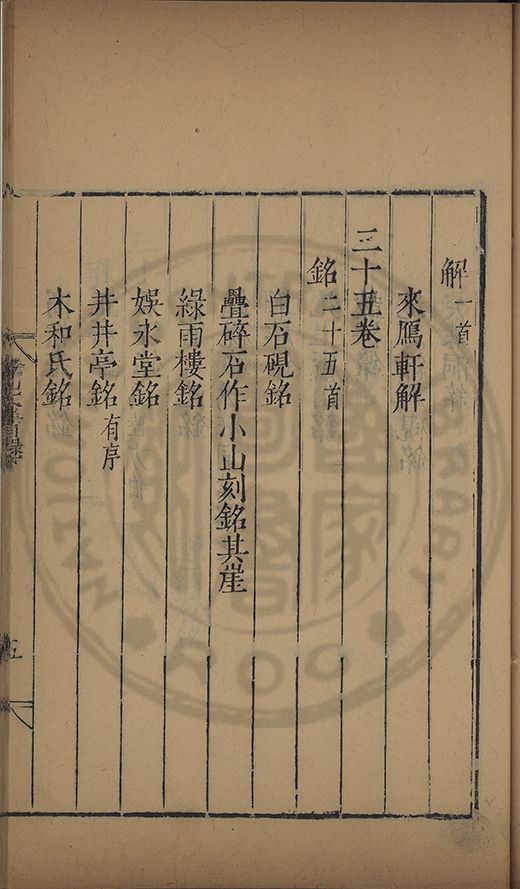 解一首
來鴈軒解
三十五卷
銘二十五首
白石硯銘
疊碎石作小山刻銘其崖
綠雨樓銘
娛永堂銘
井井亭銘有序
木和氏銘
五